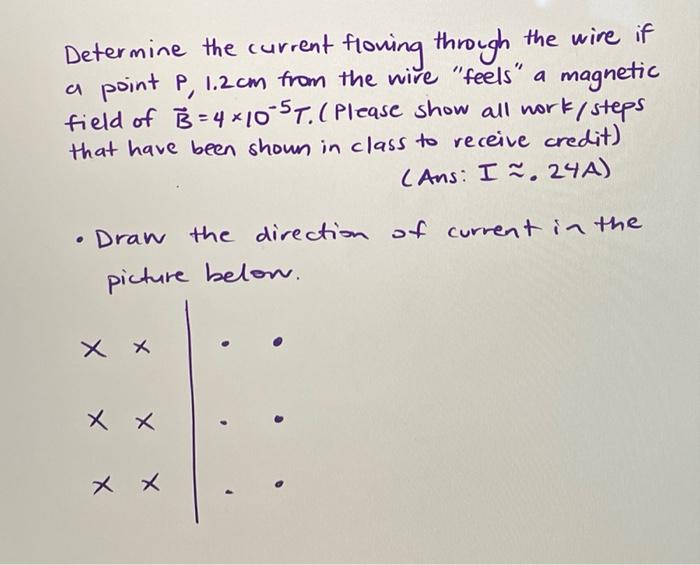 Determine the current flowing through the wire if
a point P, 1.2cm from the wire "feels" a magnetic
field of B⃗ = 4×10⁻⁵T. (Please show all work/steps
that have been shown in class to receive credit)
(Ans: I ≈ .24A)
• Draw the direction of current in the
picture below.
X X | . .
X X | . .
X X | . .